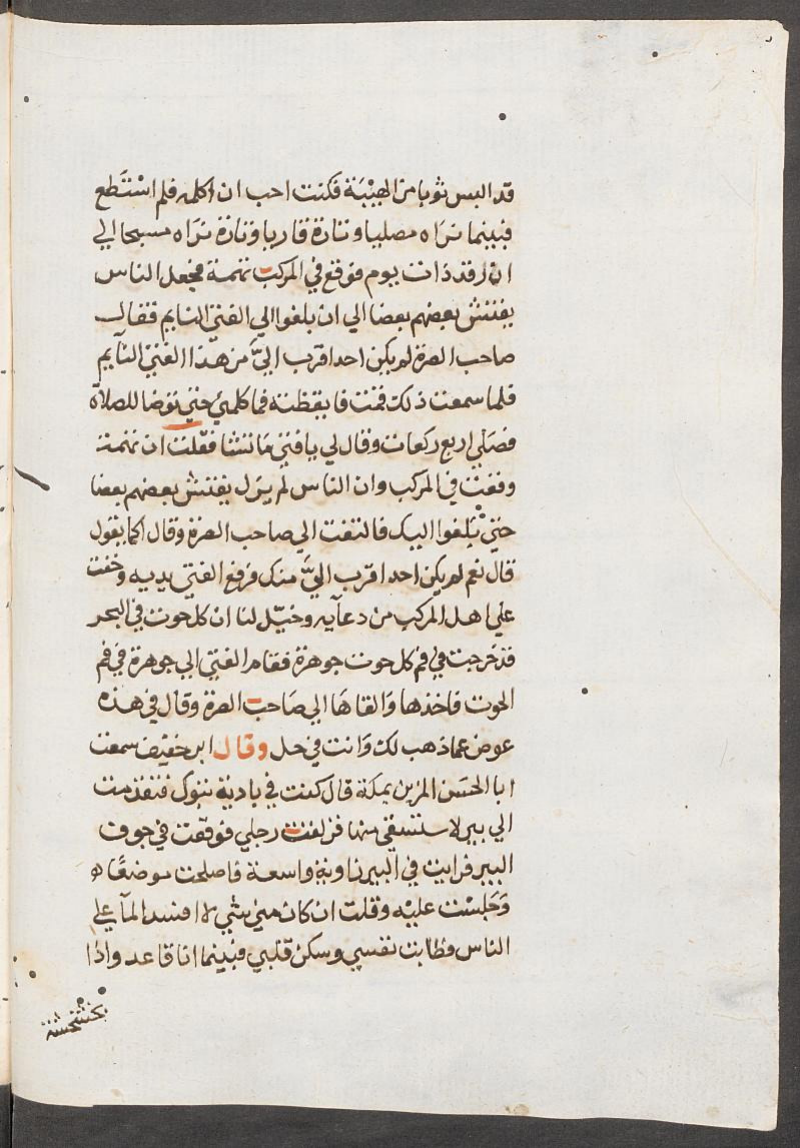 قد البس ثوبا من الهيْبَة فكنت احب ان اكلمه فلم اسْتَطع
فبينما نرَاه مصليا وتارة قاريا وتارة نرَاه مسبحا الي
ان رقد ذات يوم فوقع في المركب تهمة فجعل الناس
يفتش بعضهم بعضا الي ان بلغوا الي الفتي النايم فقال
صاحب الصرة لم يكن احدا قرب اليَّ من هَذا الفتي النآيم
فلما سمعت ذلك قمت فايقظته فما كلمني حتي توضا للصلاة
فصَلي اربع ركعات وقال لي يافتي مَاتشا فقلت ان تهمة
وقعت في المركب وان الناس لم يزل يفتش بعضهم بعضا
حتي بَلغوا اليك فالتفت الي صاحب الصرة وقال اكما يقول
قال نعم لم يكن احدا قرب اليَّ منك فرفع الفتي يديه وخفت
علي اهل المركب من دعآيه وخيّل لنا ان كل حوت في البحر
قد خرجت في فم كل حوت جوهرة فقام الفتي الي جوهرة في فم
الحوت فاخذها وَالقاهَا الي صَاحب الصرة وقال في هذه
عوض عما ذهب لك وَانت في حل وقال ابن خفيف سمعت
ابا الحسَن المزين بمكة قال كنت في بادية تبوك فتقدمت
الي بير لاستسقي منها فزلفت رجلي فوقعت في جوف
البير فرايت في البير زاوية واسعة فاصلحت موضعًا
وَجَلسْت عليْه وقلت ان كان مني شي لا افسد المآ علي
الناس وطابت نفسي وسكن قلبي فبينما انا قاعد واذا
بخشخشة